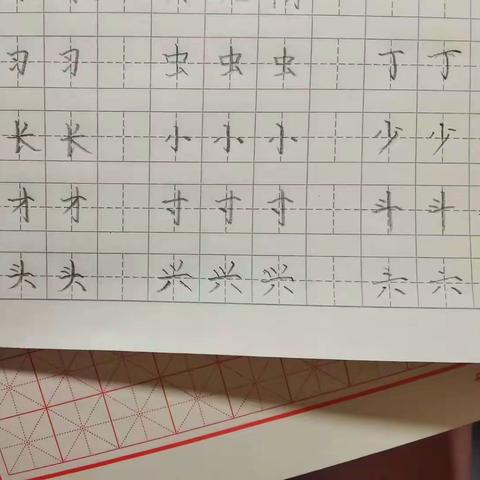 习 习 虫 虫 虫 丁 丁
长 长 小 小 小 少 少
才 才 寸 寸 寸 斗 斗
头 头 兴 兴 兴 六 六